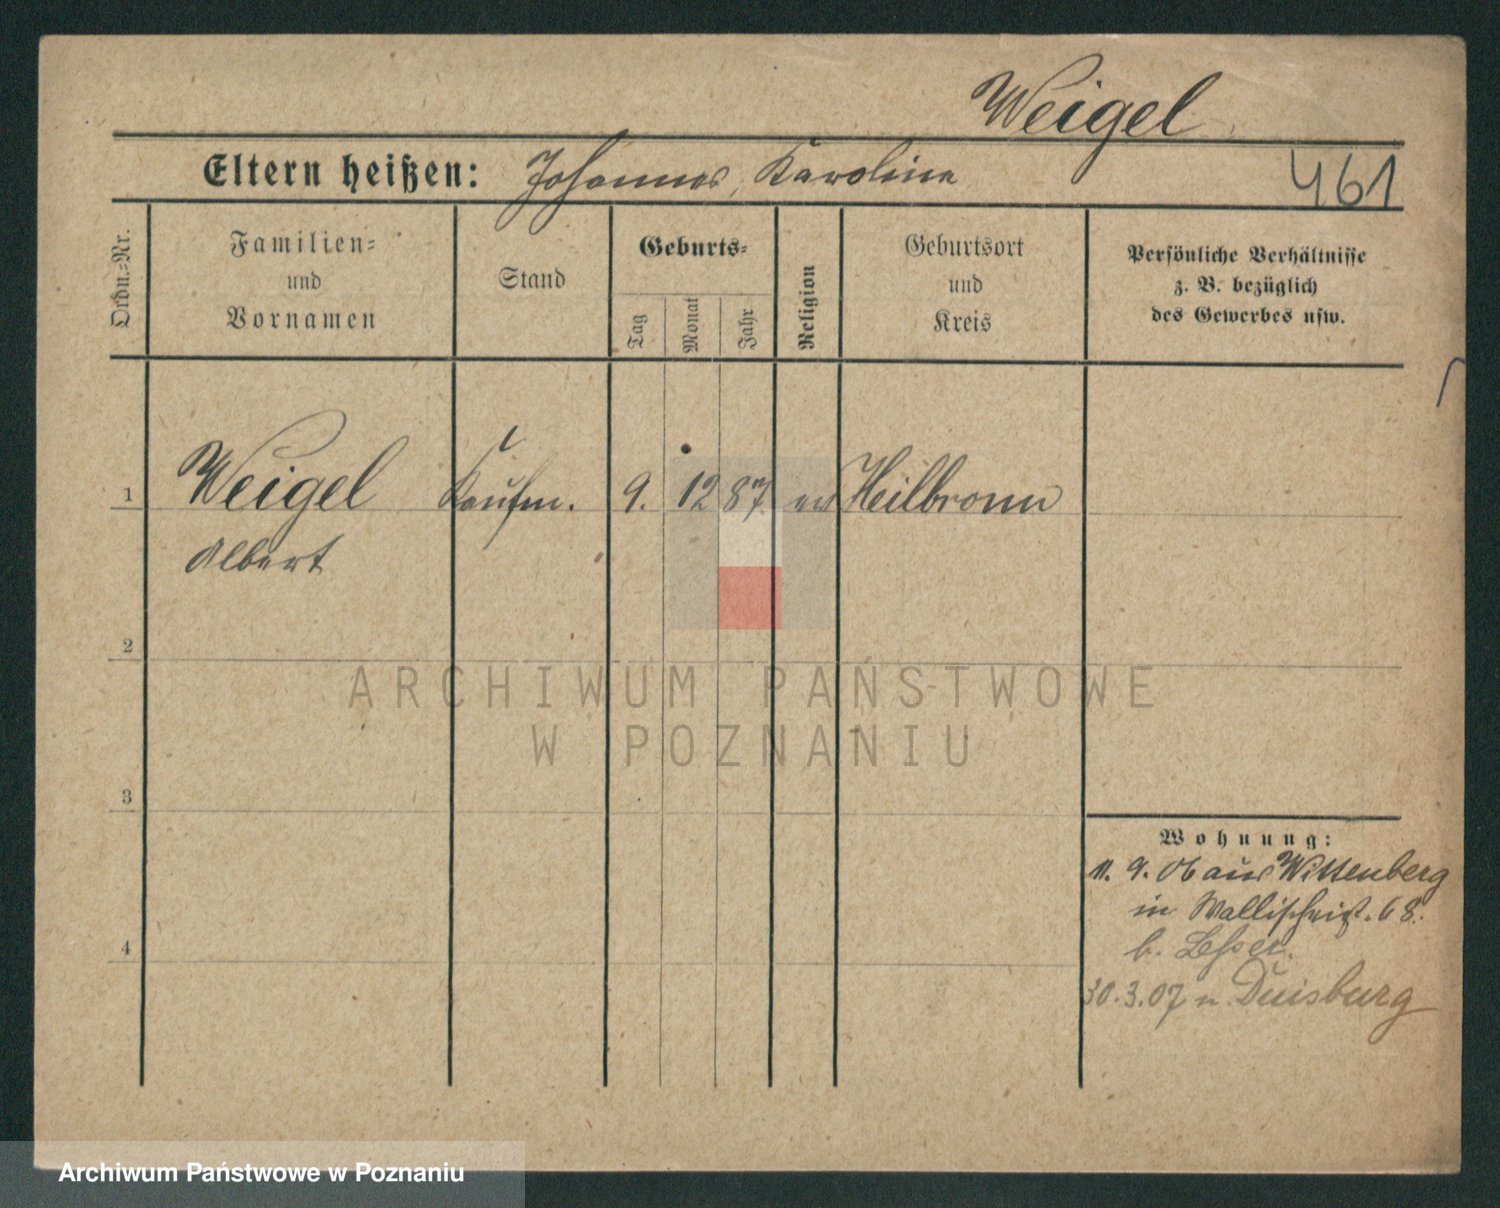 Weigel
Eltern heißen: Johannes, Karoline
461
Ordn.-Nr.
Familien-
und
Vornamen
Stand
Geburts-
Tag
Monat
Jahr
Religion
Geburtsort
und
Kreis
Persönliche Verhältnisse
z. B. bezüglich
des Gewerbes usw.
1 Weigel Kaufm. 9. 12 87 ev Heilbronn
Albert
2
ARCHIWUM PAŃSTWOWE
W POZNANIU
3
Wohnung:
11. 9. 06 aus Wittenberg
in Wallischeistr. 68.
b. Lesser.
4
30.3.07 n. Duisburg
Archiwum Państwowe w Poznaniu